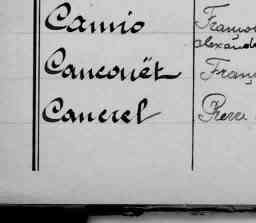 Camio François
Alexandre
Canconët Franç
Cancrel Pierre